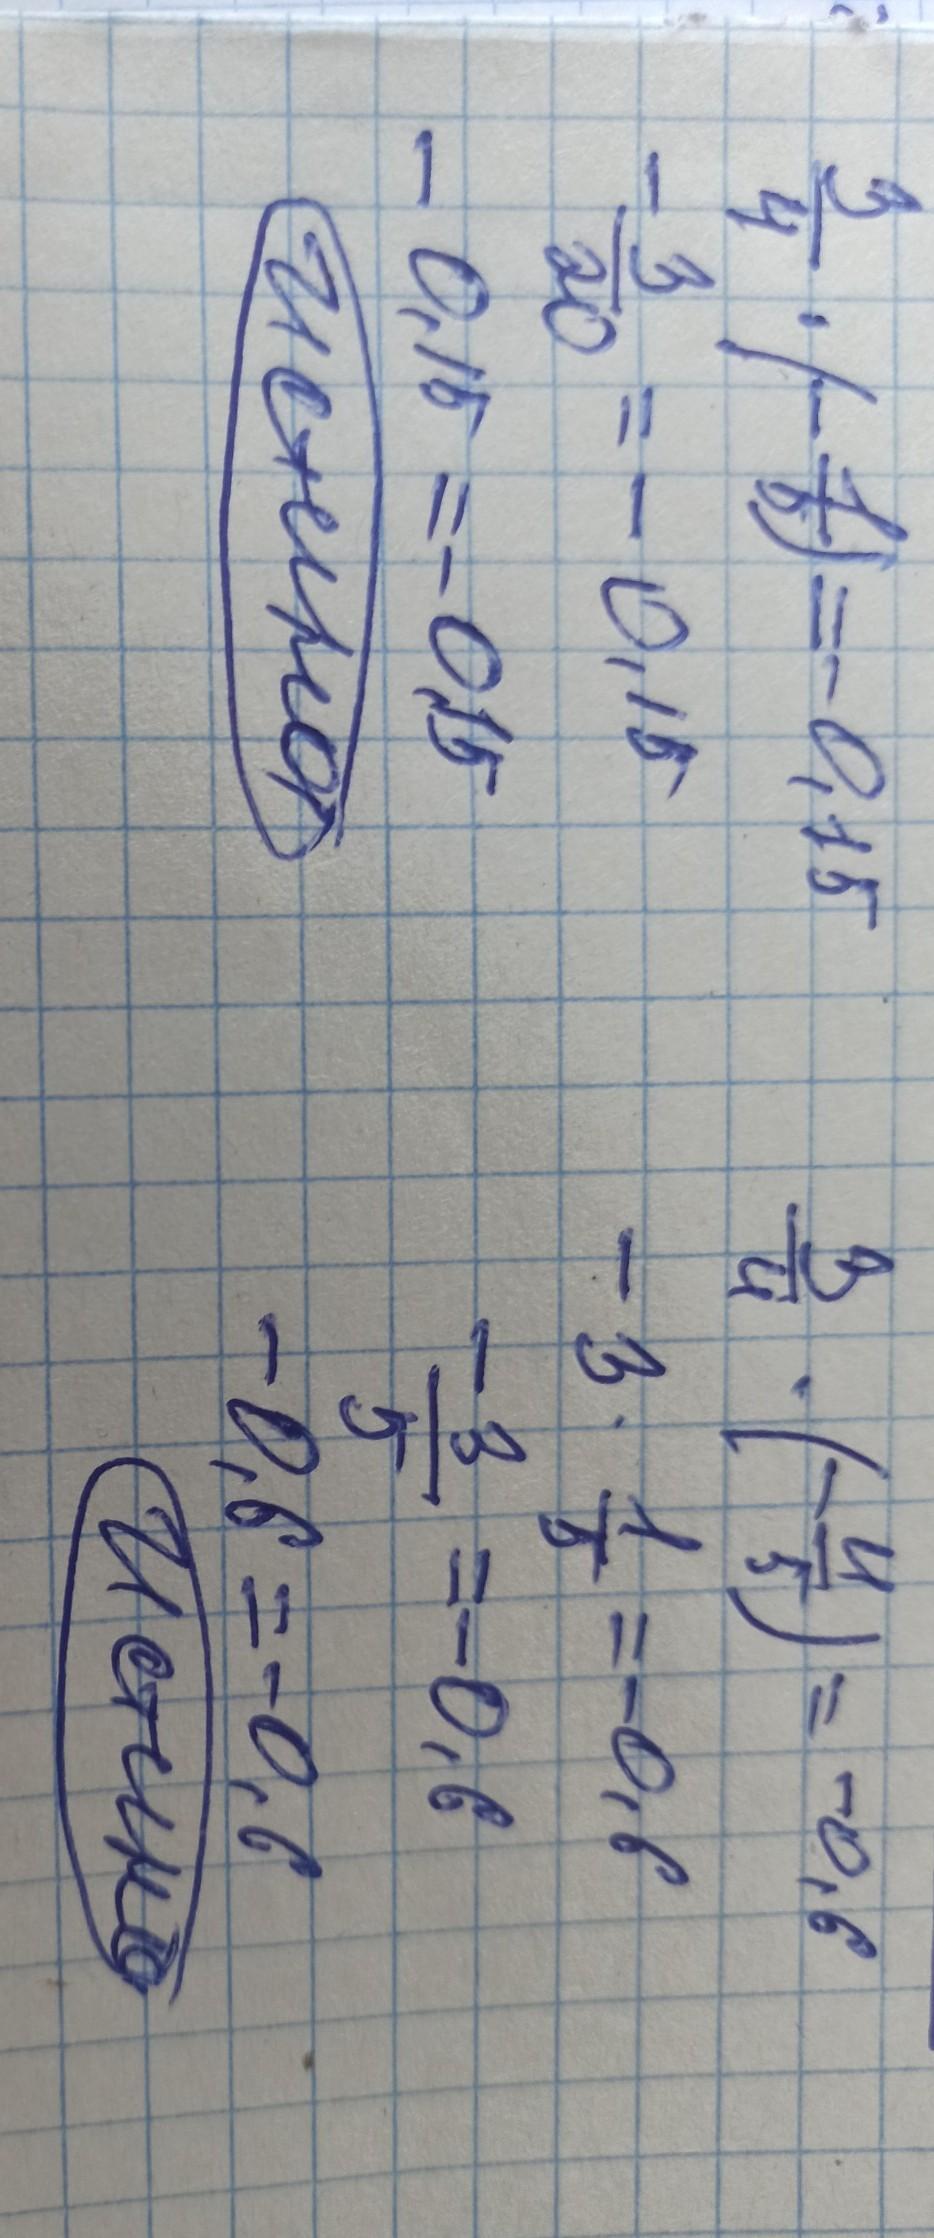 3/4 · (-1/5) = -0,15
-3/20 = -0,15
-0,15 = -0,15
Истина
3/4 · (-4/5) = -0,6
-3 · 1/5 = -0,6
-3/5 = -0,6
-0,6 = -0,6
Истина